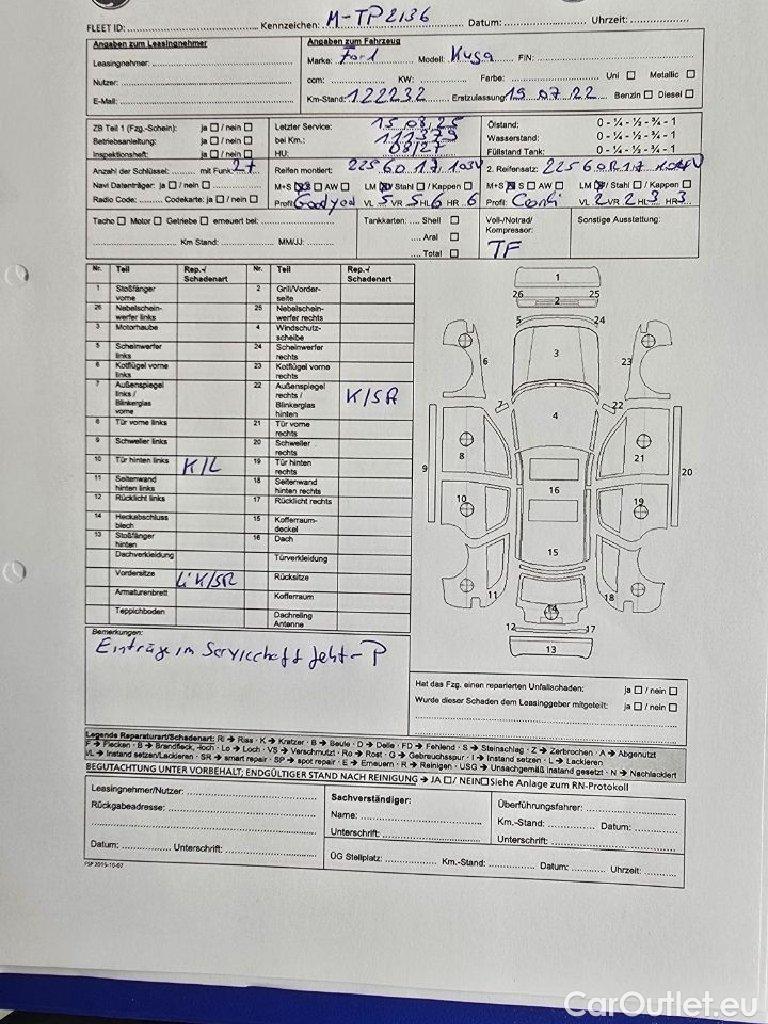 FLEET ID: Kennzeichen: M-TP2136 Datum: Uhrzeit:
Angaben zum Leasingnehmer Angaben zum Fahrzeug
Leasingnehmer: Marke: Ford Modell: Kuga FIN:
Nutzer: ccm: KW: Farbe: Uni ☐ Metallic ☐
E-Mail: Km-Stand: 122232 Erstzulassung 19.07.22 Benzin ☐ Diesel ☐
ZB Teil 1 (Fzg.-Schein): ja ☐ / nein ☐ Letzter Service: 15.08.25 Ölstand: 0 - ¼ - ½ - ¾ - 1
Betriebsanleitung: ja ☐ / nein ☐ bei Km.: 111379 Wasserstand: 0 - ¼ - ½ - ¾ - 1
Inspektionsheft: ja ☐ / nein ☐ HU: 08/27 Füllstand Tank: 0 - ¼ - ½ - ¾ - 1
Anzahl der Schlüssel: mit Funk: 2x Reifen montiert: 225 60 17 103V 2. Reifensatz: 225 60R17
Navi Datenträger: ja ☐ / nein ☐ M+S ☒ S ☐ AW ☐ LM ☒ / Stahl ☐ / Kappen ☐ M+S ☒ S ☐ AW ☐ LM ☒ / Stahl ☐ / Kappen ☐
Radio Code: Codekarte: ja ☐ / nein ☐ Profil: VL 5 VR 5 HL 6 HR 6 Profil: Conti VL 2 VR 2 HL 3 HR 3
Tacho ☐ Motor ☐ Getriebe ☐ erneuert bei: Tankkarten: Shell ☐ Voll-/Notrad/ Sonstige Ausstattung:
Kompressor:
Aral ☐
Km Stand: MM/JJ: Total ☐ TF
Nr. Teil Rep.-/ Nr. Teil Rep.-/
Schadenart Schadenart
1 Stoßfänger 2 Grill/Vorder-
vorne seite
26 Nebelschein- 25 Nebelschein-
werfer links werfer rechts
3 Motorhaube 4 Windschutz-
scheibe
5 Scheinwerfer 24 Scheinwerfer
links rechts
6 Kotflügel vorne 23 Kotflügel vorne
links rechts
7 Außenspiegel 22 Außenspiegel
links / rechts / K/SR
Blinkerglas Blinkerglas
vorne hinten
8 Tür vorne links 21 Tür vorne
rechts
9 Schweller links 20 Schweller
rechts
10 Tür hinten links K/L 19 Tür hinten
rechts
11 Seitenwand 18 Seitenwand
hinten links hinten rechts
12 Rücklicht links 17 Rücklicht rechts
14 Heckabschluss 15 Kofferraum-
blech deckel
13 Stoßfänger 16 Dach
hinten
Dachverkleidung Türverkleidung
Vordersitze Li K/SR Rücksitze
Armaturenbrett Kofferraum
Teppichboden Dachreling
Antenne
1
26 25
2
5 24
3
6 23
7 22
4
8 21
9 20
16
10 19
15
11 18
14
12 17
13
Bemerkungen:
Einträge im Serviceheft fehlt - P
Hat das Fzg. einen reparierten Unfallschaden: ja ☐ / nein ☐
Wurde dieser Schaden dem Leasinggeber mitgeteilt: ja ☐ / nein ☐
Legende Reparaturart/Schadenart: RI → Riss - K → Kratzer - B → Beule - D → Delle - FD → Fehlend - S → Steinschlag - Z → Zerbrochen - A → Abgenutzt
F → Flecken - B → Brandfleck, -loch - Lo → Loch - VS → Verschmutzt - Ro → Rost - G → Gebrauchsspur - I → Instand setzen - L → Lackieren
I/L → Instand setzen/Lackieren - SR → smart repair - SP → spot repair - E → Erneuern - R → Reinigen - USG → Unsachgemäß instand gesetzt - N → Nachlackiert
BEGUTACHTUNG UNTER VORBEHALT; ENDGÜLTIGER STAND NACH REINIGUNG → JA ☐/ NEIN ☐ Siehe Anlage zum RN-Protokoll
Leasingnehmer/Nutzer: Sachverständiger: Überführungsfahrer:
Rückgabeadresse: Name: Km.-Stand: Datum:
Unterschrift: Unterschrift:
Datum: Unterschrift: ÜG Stellplatz: Km.-Stand: Datum: Uhrzeit:
CarOutlet.eu